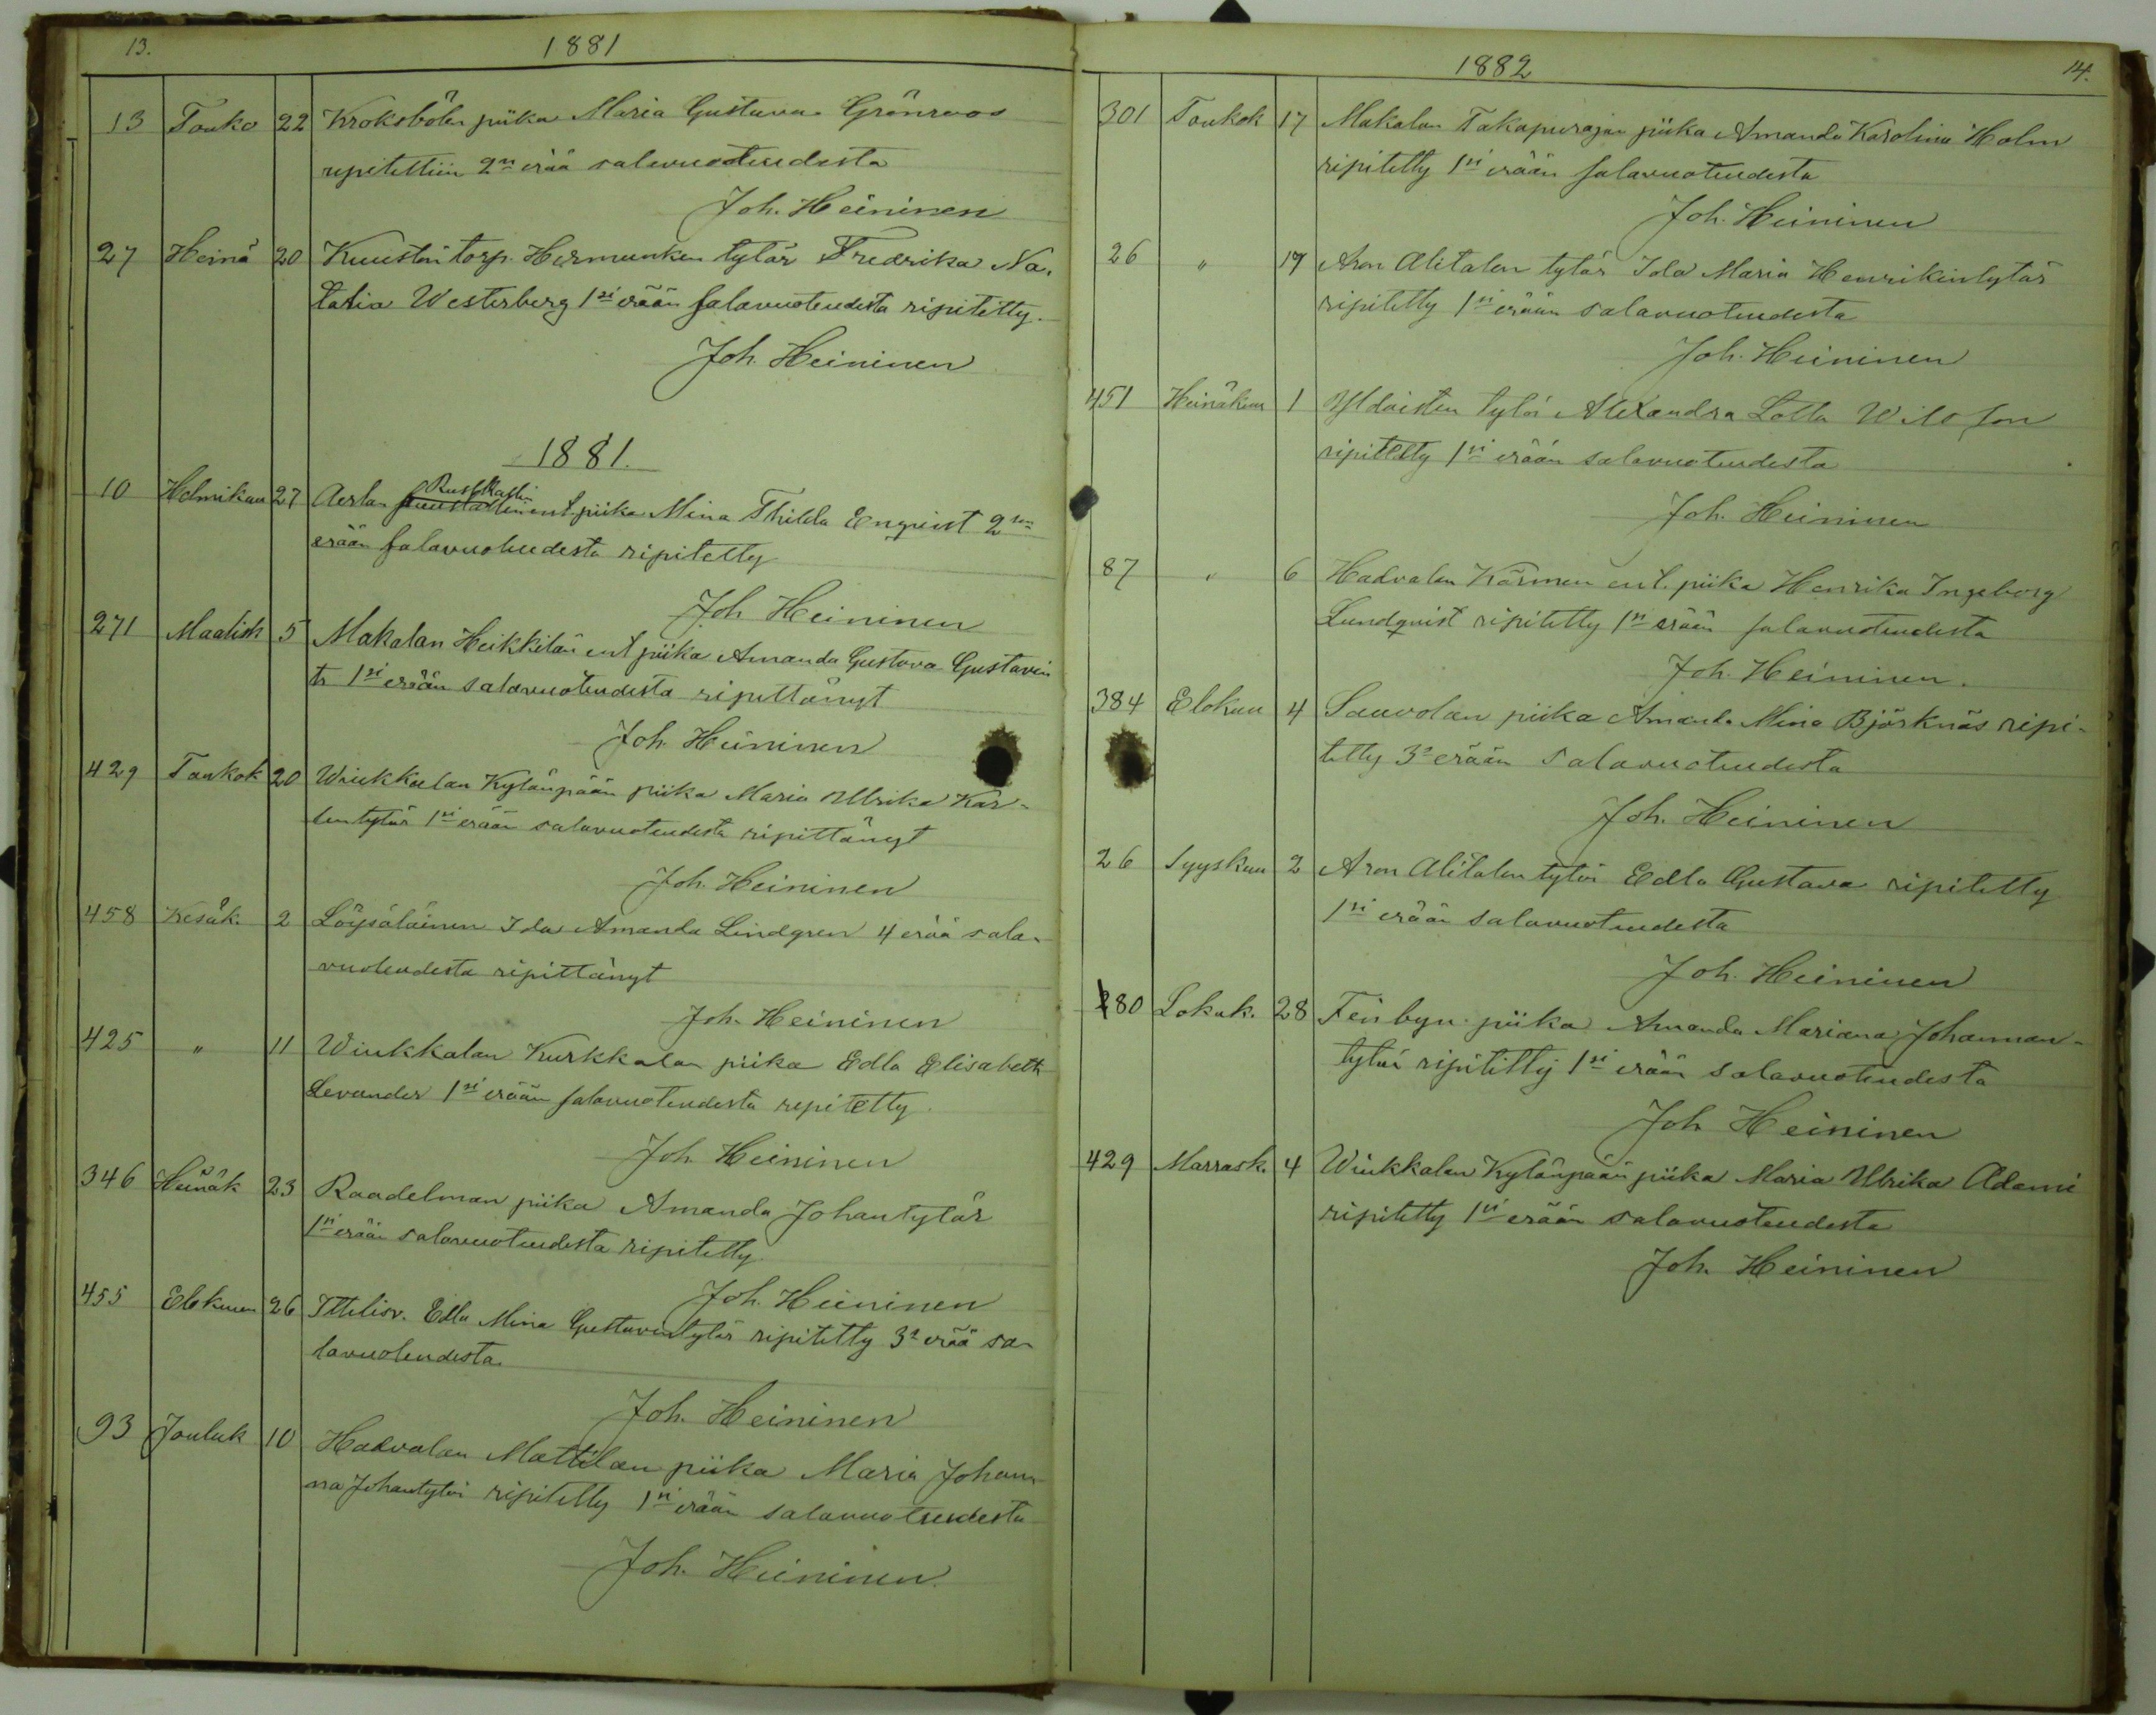 13.
1881
13 Touko 22 Kroksbölen piika Maria Gustava Grönroos
ripitettiin 2n erää salavuoteudesta
Joh. Heininen
27 Heinä 20 Kuuston torp. Hermunken tytär Fredrika Na-
talia Westerberg 1si erään salavuoteudesta ripitetty.
Joh. Heininen
1881.
10 Helmikuu 27 Aerlan Ruskkallin ent. piika Mina Thilda Enqvist 2sen
erään salavuoteudesta ripitetty
Joh Heininen
271 Maalisk 5 Makalan Heikkilän ent piika Amanda Gustava Gustavin
tr 1si erään salavuoteudesta ripittänyt
Joh. Heininen
429 Toukok 20 Wiukkalan Kylänpään piika Maria Ulrika Kar-
lentytär 1si erään salavuoteudesta ripittänyt
Joh. Heininen
458 Kesäk. 2 Löysäläinen Ida Amanda Lindgren 4 erää sala-
vuoteudesta ripittänyt
Joh. Heininen
425 " 11 Wiukkalan Kurkkalan piika Edla Elisabeth
Levander 1si erään salavuoteudesta ripitetty.
Joh. Heininen
346 Heinäk 23 Raadelman piika Amanda Johantytär
1si erään salavuoteudesta ripitetty
Joh. Heininen
455 Elokuun 26 Ittelisv. Edla Mina Gustavintytär ripitetty 3s erää sa-
lavuoteudesta.
Joh. Heininen
93 Jouluk 10 Hadvalan Mattilan piika Maria Johan-
na Johantytär ripitetty 1si erään salavuoteudesta
Joh. Heininen.
1882
14.
301 Toukok 17 Makalan Takapurajan piika Amanda Karolina Holm
ripitetty 1si erään salavuoteudesta
Joh. Heininen
26 " 17 Aron Alitalon tytär Ida Maria Henrikintytär
ripitetty 1si erään salavuoteudesta
Joh. Heininen
451 Heinäkuu 1 Yldäisten tytär Alexandra Lotta Wilsson
ripitetty 1si erään salavuoteudesta
Joh. Heininen
87 " 6 Hadvalan Kärmen ent. piika Henrika Ingeborg
Lundqvist ripitetty 1si erään salavuoteudesta
Joh. Heininen.
384 Elokuu 4 Sauvolan piika Amanda Mina Björknäs ripi-
tetty 3s erään salavuoteudesta
Joh. Heininen
26 Syyskuu 2 Aron Alitalon tytär Edla Gustava ripitetty
1si erään salavuoteudesta
Joh. Heininen
180 Lokak. 28 Finbyn piika Amanda Mariana Johannan-
tytär ripitetty 1si erään salavuoteudesta
Joh Heininen
429 Marrask. 4 Wiukkalan Kylänpään piika Maria Ulrika Adami
ripitetty 1si erään salavuoteudesta
Joh. Heininen